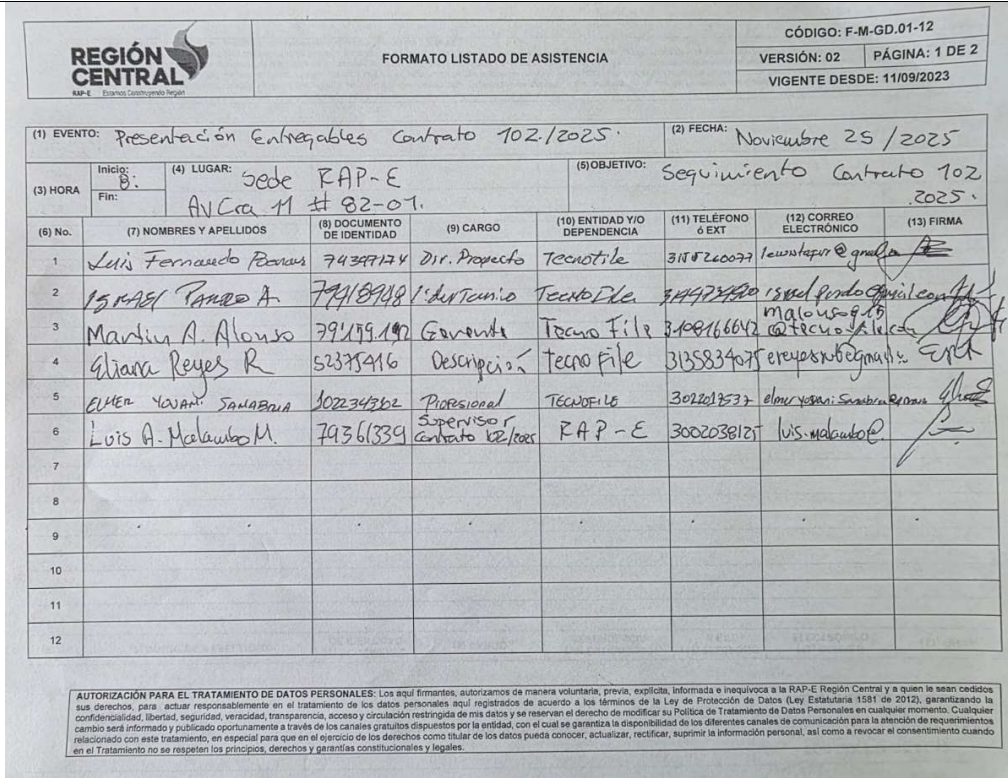 REGIÓN
CENTRAL
RAP-E Estamos Construyendo Región
FORMATO LISTADO DE ASISTENCIA
CÓDIGO: F-M-GD.01-12
VERSIÓN: 02 PÁGINA: 1 DE 2
VIGENTE DESDE: 11/09/2023
(1) EVENTO: Presentación Entregables Contrato 102./2025.
(2) FECHA: Noviembre 25 / 2025
(3) HORA Inicio: 8: Fin:
(4) LUGAR: Sede RAP-E
AV Cra 11 # 82-01.
(5)OBJETIVO: Seguimiento Contrato 102
2025.
(6) No. (7) NOMBRES Y APELLIDOS (8) DOCUMENTO DE IDENTIDAD (9) CARGO (10) ENTIDAD Y/O DEPENDENCIA (11) TELÉFONO Ó EXT (12) CORREO ELECTRÓNICO (13) FIRMA
1 Luis Fernando 74347174 Dir. Proyecto Tecnofile
2 ISRAEL PARDO A. 79418948 TecnoFile
3 Martin A. Alonso 79'159.192 Gerente Tecno File 3108166642 malonso915 @tecnofile.com
4 Eliana Reyes R 52375416 Descripción Tecno File 3135834075
5 ELMER YOVANI SANABRIA 1022343362 Profesional TECNOFILE 3022018537
6 Luis A. Malambo M. 79361339 Supervisor Contrato 102/2025 RAP-E 3002038125 luis.malambo@.
7
8
9
10
11
12
AUTORIZACIÓN PARA EL TRATAMIENTO DE DATOS PERSONALES: Los aquí firmantes, autorizamos de manera voluntaria, previa, explícita, informada e inequívoca a la RAP-E Región Central y a quien le sean cedidos
sus derechos, para actuar responsablemente en el tratamiento de los datos personales aquí registrados de acuerdo a los términos de la Ley de Protección de Datos (Ley Estatutaria 1581 de 2012), garantizando la
confidencialidad, libertad, seguridad, veracidad, transparencia, acceso y circulación restringida de mis datos y se reservan el derecho de modificar su Política de Tratamiento de Datos Personales en cualquier momento. Cualquier
cambio será informado y publicado oportunamente a través de los canales gratuitos dispuestos por la entidad, con el cual se garantiza la disponibilidad de los diferentes canales de comunicación para la atención de requerimientos
relacionado con este tratamiento, en especial para que en el ejercicio de los derechos como titular de los datos pueda conocer, actualizar, rectificar, suprimir la información personal, así como a revocar el consentimiento cuando
en el Tratamiento no se respeten los principios, derechos y garantías constitucionales y legales.